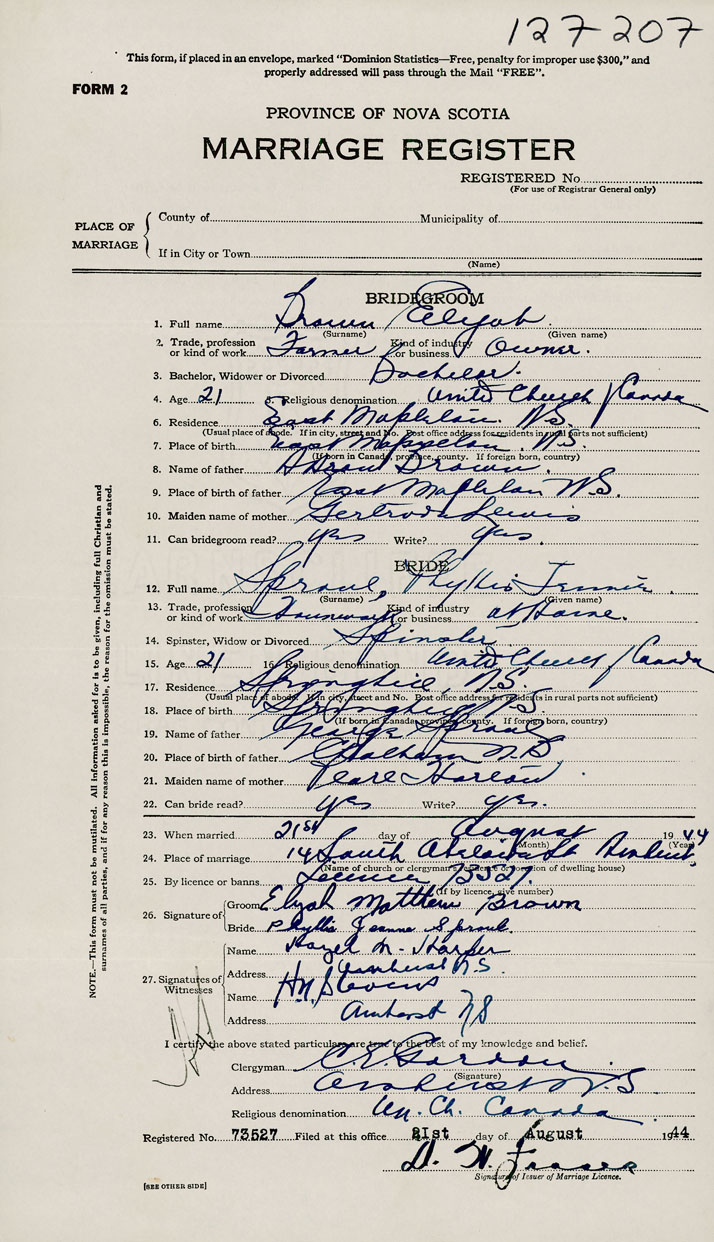 127-207
This form, if placed in an envelope, marked "Dominion Statistics—Free, penalty for improper use $300," and
properly addressed will pass through the Mail "FREE".
FORM 2
PROVINCE OF NOVA SCOTIA
MARRIAGE REGISTER
REGISTERED No.
(For use of Registrar General only)
PLACE OF MARRIAGE
County of Municipality of
If in City or Town
(Name)
BRIDEGROOM
1. Full name Brown Elijah
(Surname) (Given name)
2. Trade, profession or kind of work Farmer Kind of industry or business Owner.
3. Bachelor, Widower or Divorced Bachelor.
4. Age 21 5. Religious denomination United Church / Canada
6. Residence East Mapleton N.S.
(Usual place of abode. If in city, street and No. Post office address for residents in rural parts not sufficient)
7. Place of birth East Mappelon N.S.
(If born in Canada, province, county. If foreign born, country)
8. Name of father Brown.
9. Place of birth of father East Mapleton N.S.
10. Maiden name of mother Gertrude Lewis
11. Can bridegroom read? yes Write? yes.
BRIDE
12. Full name Sproul, Phyllis Jennie.
(Surname) (Given name)
13. Trade, profession or kind of work Housework Kind of industry or business at Home.
14. Spinster, Widow or Divorced Spinster
15. Age 21 16. Religious denomination United Church / Canada
17. Residence Springhill N.S.
(Usual place of abode. If in city, street and No. Post office address for residents in rural parts not sufficient)
18. Place of birth Springhill N.S.
(If born in Canada, province, county. If foreign born, country)
19. Name of father George Sproul
20. Place of birth of father Chatham N.B
21. Maiden name of mother Pearl Harlow
22. Can bride read? yes Write? yes.
23. When married 21st day of August 1944
(Month) (Year)
24. Place of marriage 14 South St Amherst,
(Name of church or clergyman's residence or location of dwelling house)
25. By licence or banns Licence
(If by licence, give number)
26. Signature of
Groom Elijah Matthew Brown
Bride Phyllis Jeanne Sproul.
27. Signatures of Witnesses
Name Hazel M. Harper
Address Amherst N.S.
Name H.M. Stevens
Address Amherst NS
I certify the above stated particulars are true to the best of my knowledge and belief.
Clergyman C.E. Gordon
(Signature)
Address Amherst N.S.
Religious denomination Un. Ch. Canada
Registered No. 73527 Filed at this office 21st day of August 1944
D. W. Fraser
Signature of Issuer of Marriage Licence.
[SEE OTHER SIDE]
NOTE.—This form must not be mutilated. All information asked for is to be given, including full Christian and
surnames of all parties, and if for any reason this is impossible, the reason for the omission must be stated.